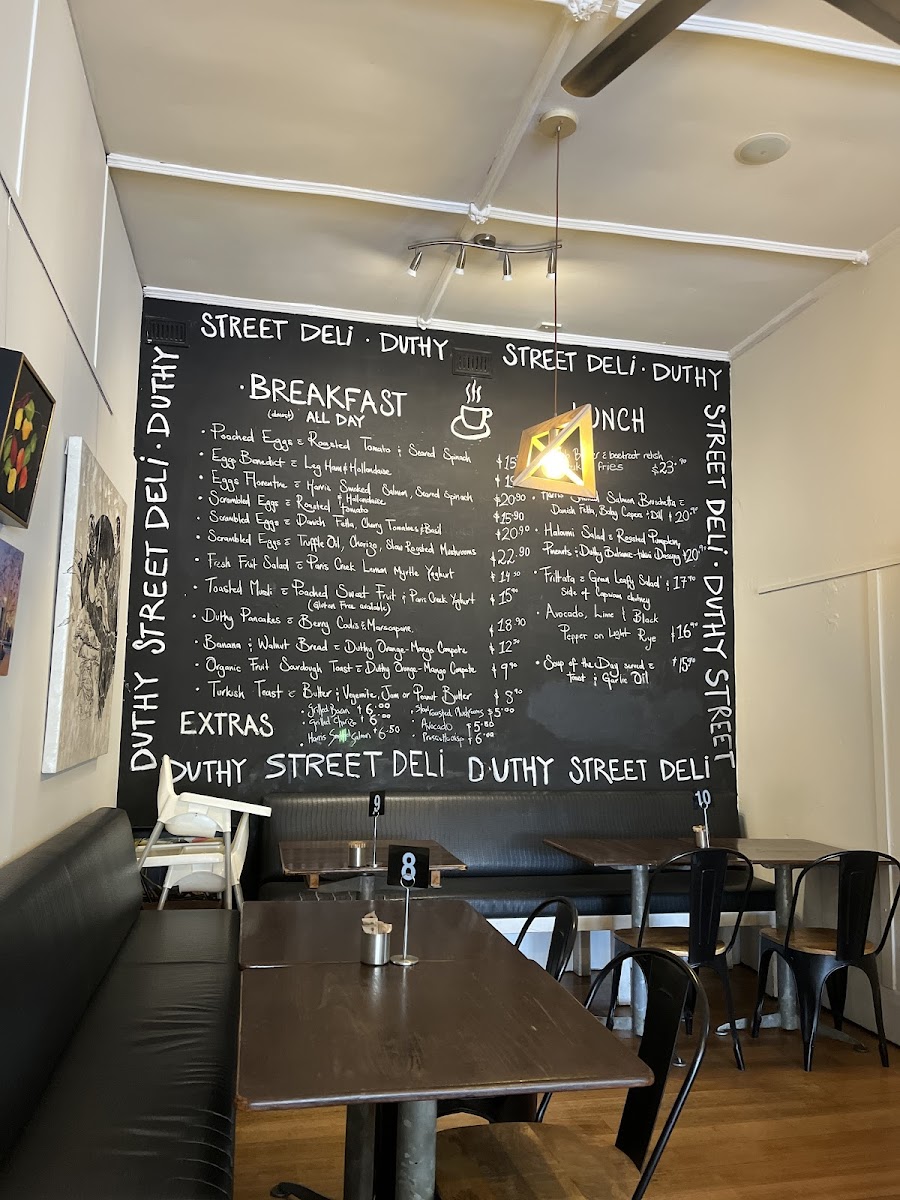 STREET DELI · DUTHY
STREET DELI · DUTHY
DUTHY STREET DELI · DUTHY
STREET DELI · DUTHY STREET
· BREAKFAST
(almost) ALL DAY
· Poached Eggs c Roasted Tomato & Seared Spinach $15
· Eggs Benedict c Leg Ham & Hollandaise
Eggs Florentine c Harris Smoked Salmon, Seared Spinach & Hollandaise $20.90
· Scrambled Eggs c Roasted Tomato $15.90
· Scrambled Eggs c Danish Fetta, Cherry Tomatoes & Basil $20.90
· Scrambled Eggs c Truffle Oil, Chorizo, Slow Roasted Mushrooms $22.90
· Fresh Fruit Salad c Paris Creek Lemon Myrtle Yoghurt $14.50
· Toasted Muesli c Poached Sweet Fruit & Paris Creek Yoghurt $15.90
(Gluten Free available)
· Duthy Pancakes c Berry Coulis & Marscapone $18.90
· Banana & Walnut Bread c Duthy Orange-Mango Compote $12.50
· Organic Fruit Sourdough Toast c Duthy Orange-Mango Compote $9.90
· Turkish Toast c Butter & Vegemite, Jam or Peanut Butter $8.90
EXTRAS
· Grilled Bacon $6.00
· Grilled Chorizo $6.00
Harris Salmon $6.50
· Slow Roasted Mushrooms $5.00
· Avocado $5.50
· Prosciutto crisp $6.00
UNCH
& beetroot relish
fries $23.90
Salmon Bruschetta c
Danish Fetta, Baby Capers & Dill $20
· Haloumi Salad c Roasted Pumpkin,
Pinenuts & Duthy Balsamic Dressing $20
· Frittata c Green Leafy Salad & $17.90
Side of Capsicum chutney
· Avocado, Lime & Black
Pepper on Light Rye $16.90
· Soup of the Day served c $15.90
toast & Garlic Oil
DUTHY STREET DELI DUTHY STREET DELI
9
10
8